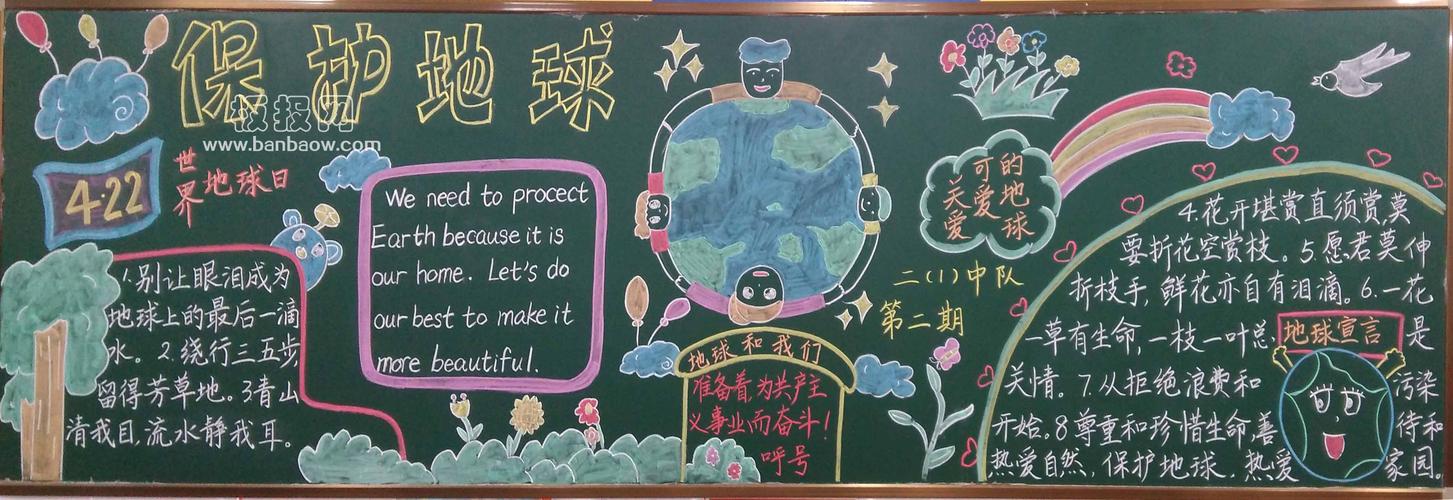 保护地球
板报网
www.banbaow.com
4·22
世界地球日
We need to procect
Earth because it is
our home. Let's do
our best to make it
more beautiful.
1.别让眼泪成为
地球上的最后一滴
水。2.绕行三五步
留得芳草地。3青山
清我目,流水静我耳。
地球和我们
准备着,为共产主
义事业而奋斗!
呼号
二(1)中队
第二期
可的
关爱地
爱球
4.花开堪赏直须赏,莫
要折花空赏枝。5.愿君莫伸
折枝手,鲜花亦自有泪滴。6.一花
一草有生命,一枝一叶总 是
地球宣言
关情。7.从拒绝浪费和 污染
开始。8尊重和珍惜生命,善 待和
热爱自然,保护地球,热爱 家园。